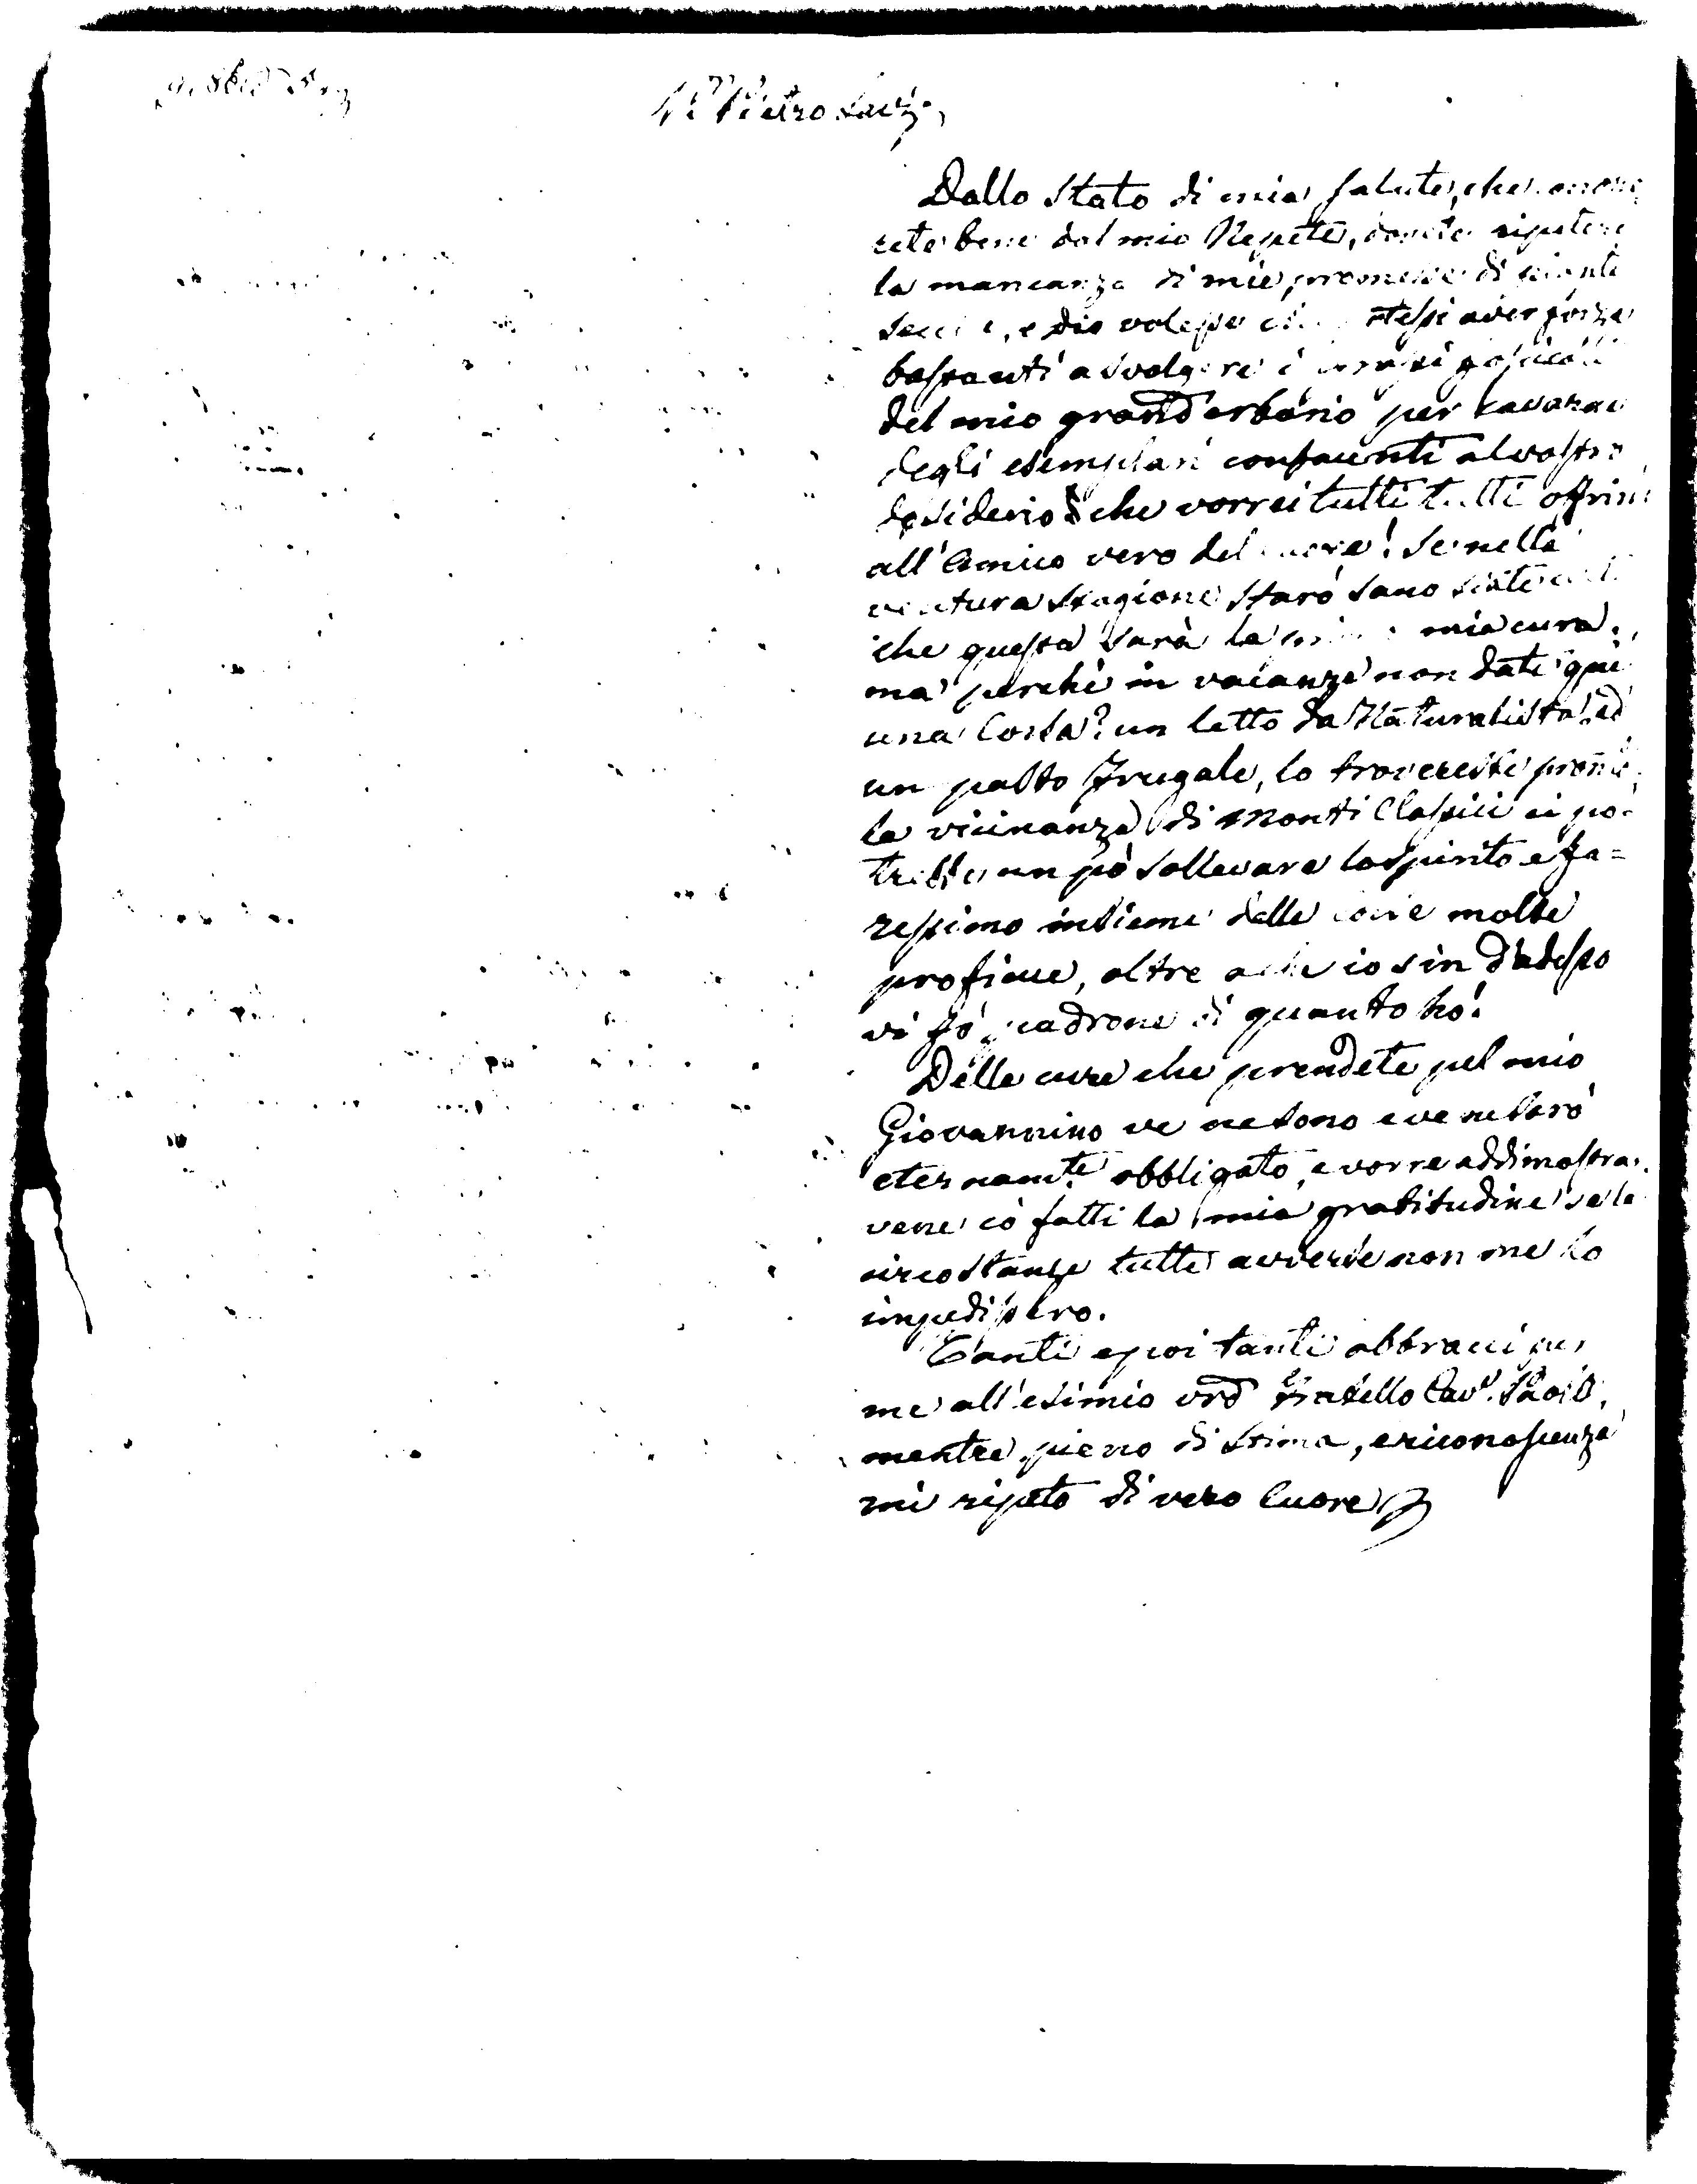 Pietro Savj
Dallo Stato di mia salute, che
rete bene dal mio Nepote, dovete ripetere
la mancanza di mie promesse di piante
secche, e dio volesse che potessi aver forze
bastanti a svolgere i fascicoli
del mio grand'erbario per cavarne
degli esemplari confacenti al vostro
desiderio che vorrei tutti tutti offrire
all'Amico vero del cuore! Se nella
ventura stagione starò sano siate
che questa sarà la mia cura.
ma perchè in vacanze non date quì
una Corsa? un letto da Naturalista, ed
un pasto frugale, lo trovereste
la vicinanza di Monti Classici ci po-
trebbe un pò sollevare lo spirito e fa=
ressimo insieme delle cose molte
proficue, oltre a che io sin d'adesso
vi fò padrone di quanto hò!
Delle cure che prendete pel mio
Giovannino ve ne sono e ve ne sarò
eternam.te obbligato, e vorre addimostrar
vene cò fatti la mia gratitudine se le
circostanze tutte avverse non me lo
impedissero.
Tanti e poi tanti abbracci per
me all'esimio vrō Fratello Cav.e Paolo,
mentre pieno di stima, e riconoscenza
mi ripeto di vero Cuore